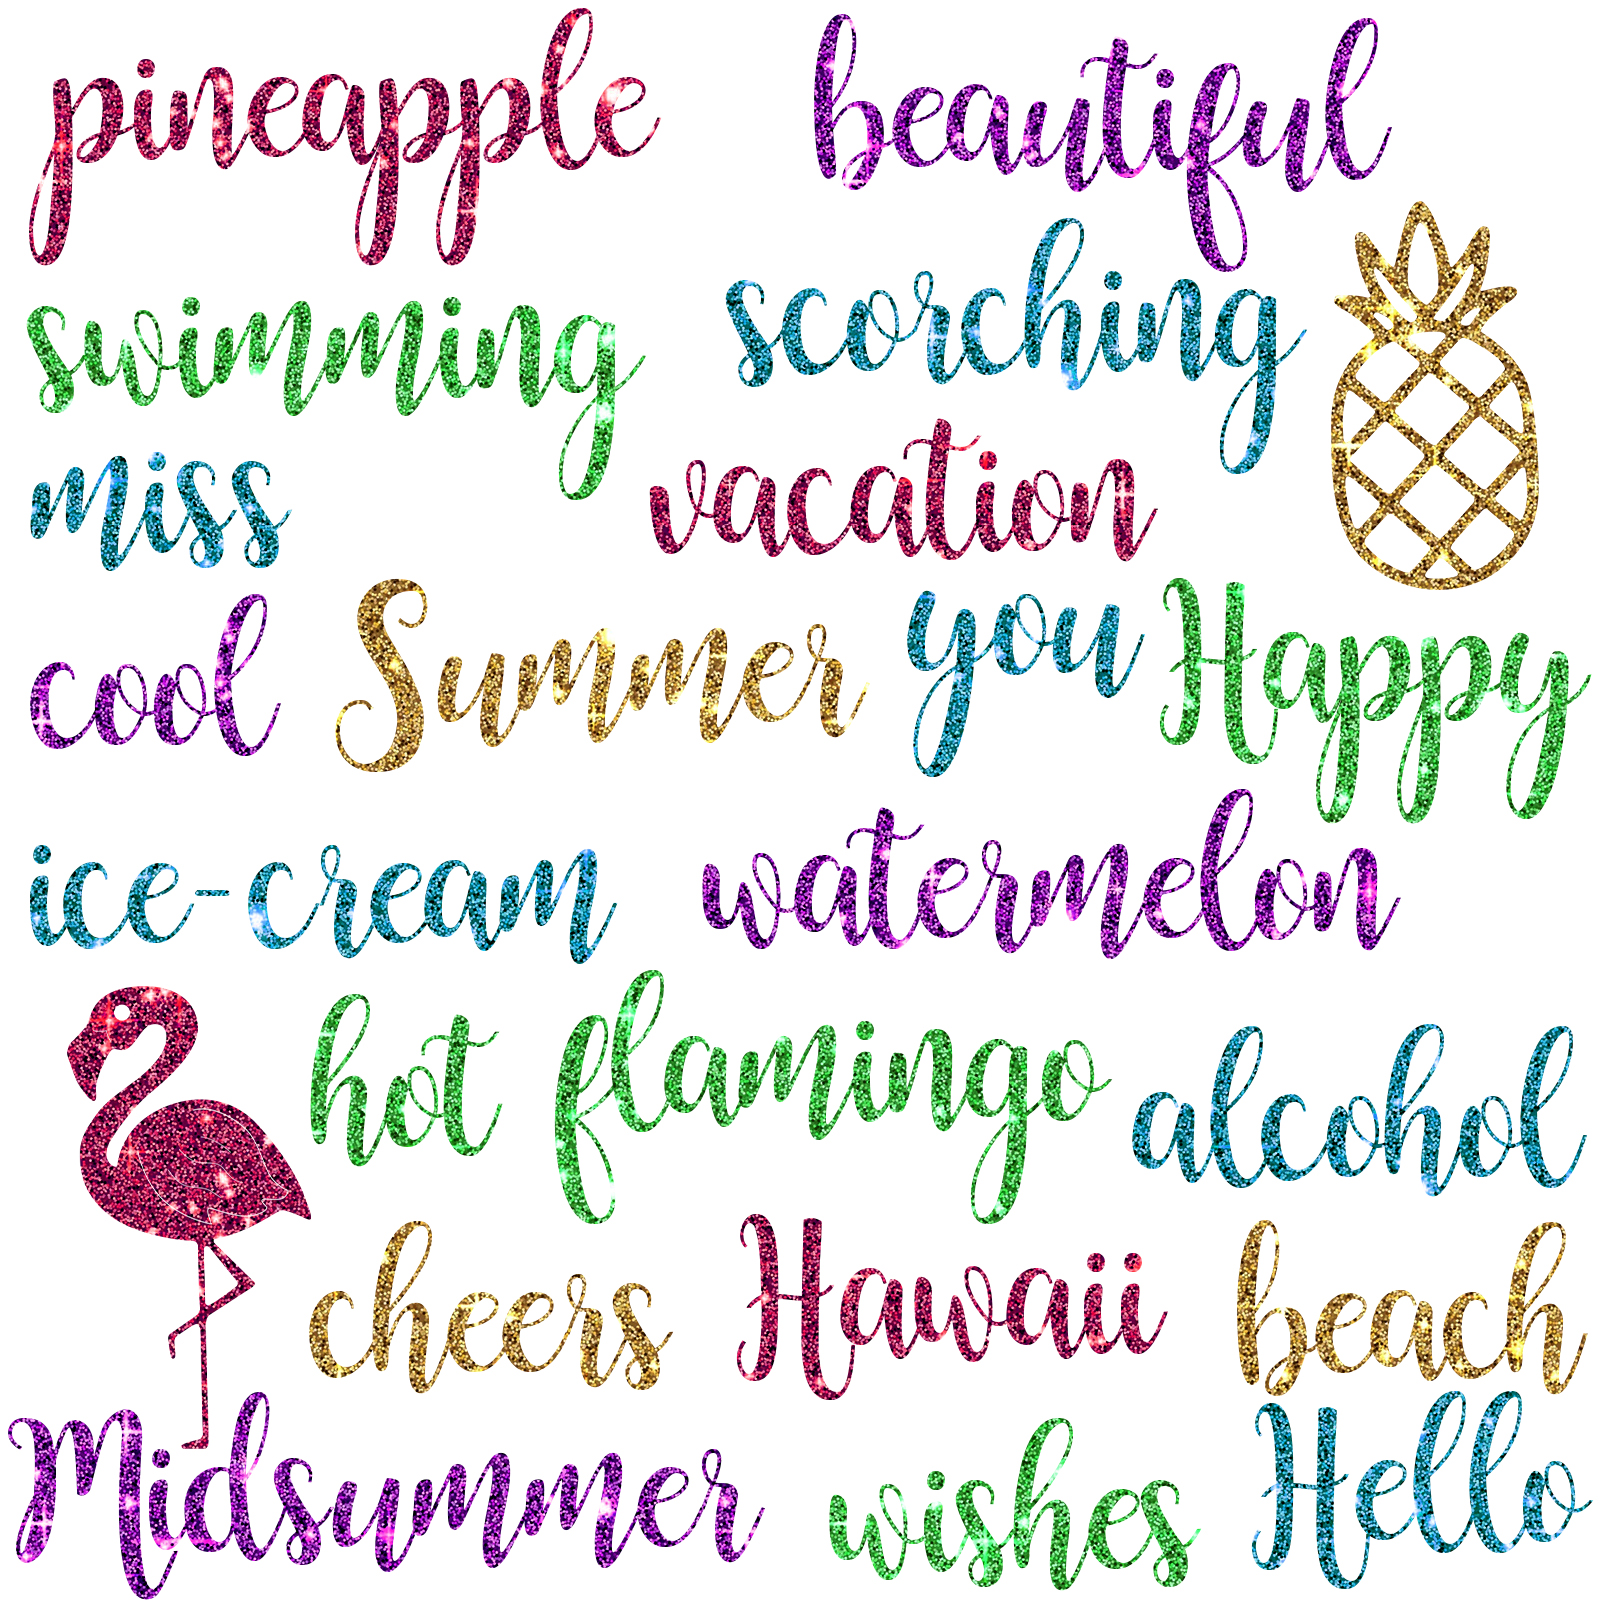 pineapple beautiful
swimming scorching
miss vacation
cool Summer you Happy
ice-cream watermelon
hot flamingo alcohol
cheers Hawaii beach
Midsummer wishes Hello